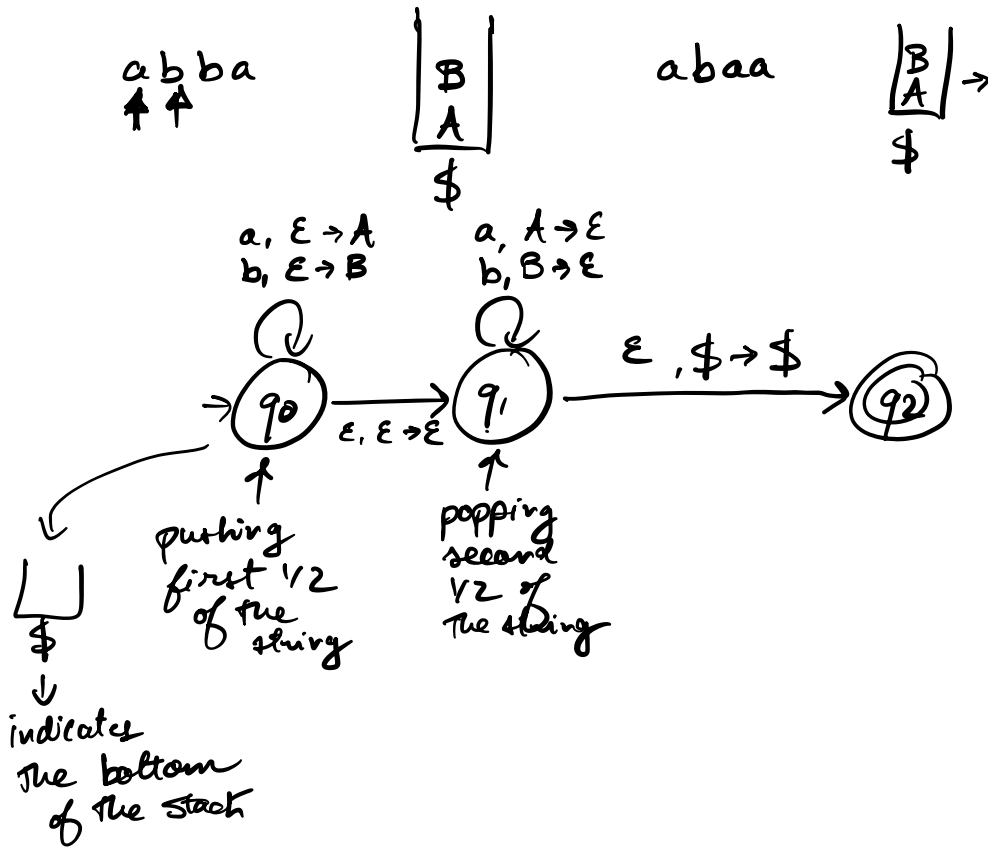 abba
B
A
$
abaa
B
A
→
$
a, ε→A
b, ε→B
a, A→ε
b, B→ε
ε, $→$
q0
ε, ε→ε
q1
q2
pushing
first 1/2
of the
string
popping
second
1/2 of
the string
$
indicates
the bottom
of the stack